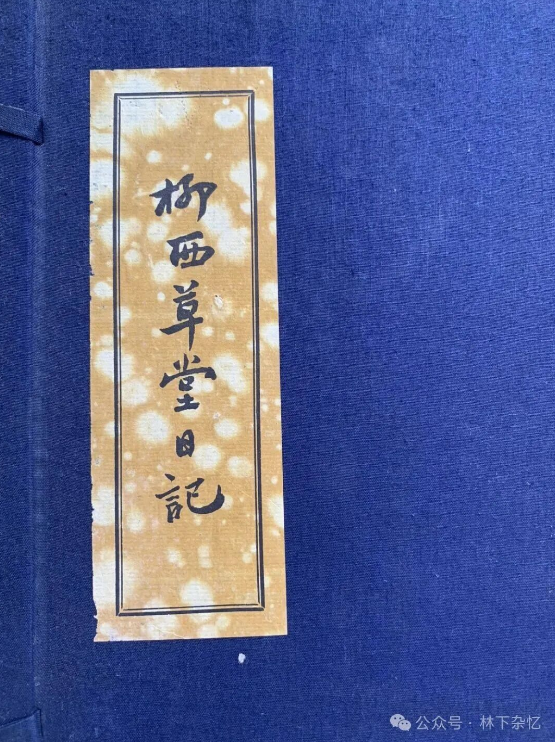 柳西草堂日記
公众号 · 林下杂忆